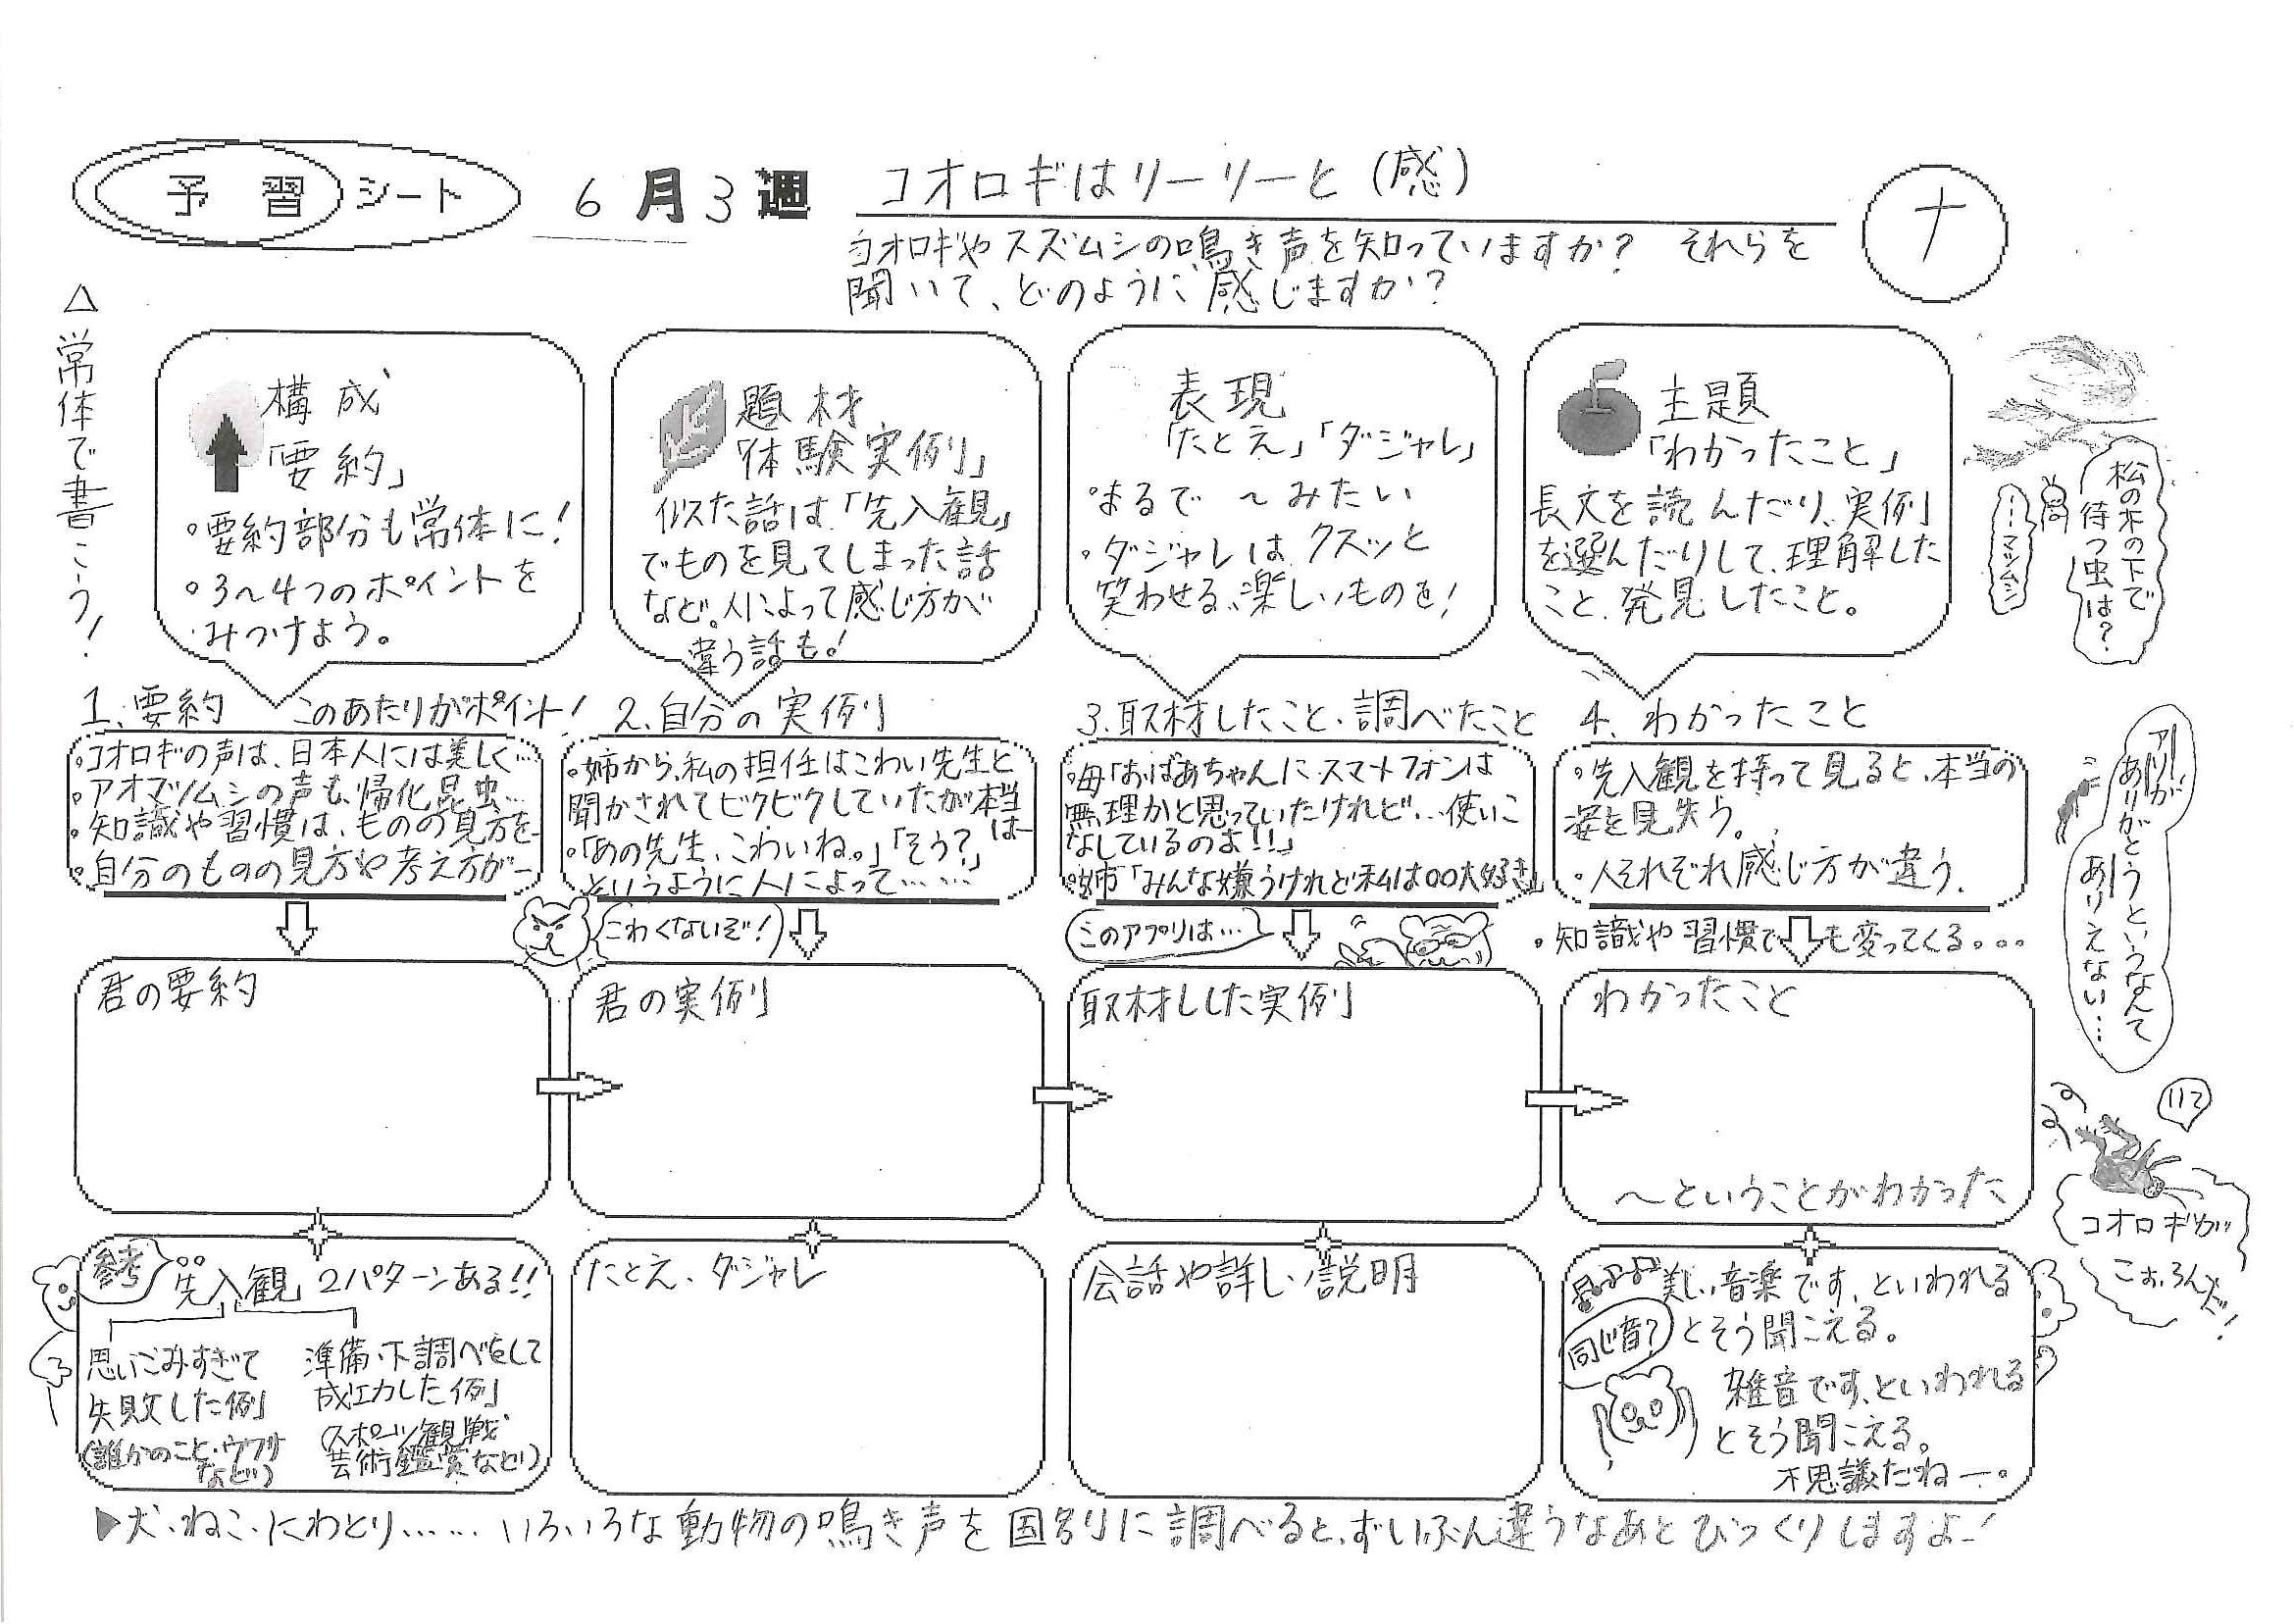 予習シート 6月3週 コオロギはリーリーと(感) ナ
コオロギやスズムシの鳴き声を知っていますか? それらを
聞いて、どのように感じますか?
△常体で書こう!
構成
「要約」
・要約部分も常体に!
・3~4つのポイントを
みつけよう。
題材
「体験実例」
似た話は「先入観」
でものを見てしまった話
など。人によって感じ方が
違う話も!
表現
「たとえ」「ダジャレ」
・まるで ~みたい
・ダジャレは、クスッと
笑わせる、楽しいものを!
主題
「わかったこと」
長文を読んだり、実例
を選んだりして、理解した
こと、発見したこと。
松の木の下で
待つ虫は?
マツムシ
1.要約 このあたりがポイント!
・コオロギの声は、日本人には美しく…
・アオマツムシの声も、帰化昆虫…
・知識や習慣は、ものの見方を―
・自分のものの見方や考え方が―
2.自分の実例
・姉から、私の担任はこわい先生と
聞かされてビクビクしていたが本当は―
・「あの先生、こわいね。」「そう?」
というように人によって……
3.取材したこと、調べたこと
・母「おばあちゃんに、スマートフォンは
無理かと思っていたけれど…使いこ
なしているのよ!!」
・姉「みんな嫌うけれど私は○○大好き」
4.わかったこと
・先入観を持って見ると、本当の
姿を見失う。
・人それぞれ感じ方が違う。
・知識や習慣でも変ってくる。。。
アリが
ありがとうというなんて
ありえない…
こわくないぞ!
このアプリは…
君の要約
君の実例
取材しした実例
わかったこと
~ということがわかった
コオロギが
ころんだ!
参考
先入観 2パターンある!!
思いこみすぎて
失敗した例
(誰かのこと・ウワサ
など)
準備・下調べをして
成功した例
(スポーツ観戦
芸術鑑賞など)
たとえ、ダジャレ
会話や詳しい説明
美しい音楽です、といわれる
とそう聞こえる。
同じ音?
雑音です、といわれる
とそう聞こえる。
不思議だねー。
▶犬、ねこ、にわとり……いろいろな動物の鳴き声を国別に調べると、ずいぶん違うなあとびっくりしますよ!